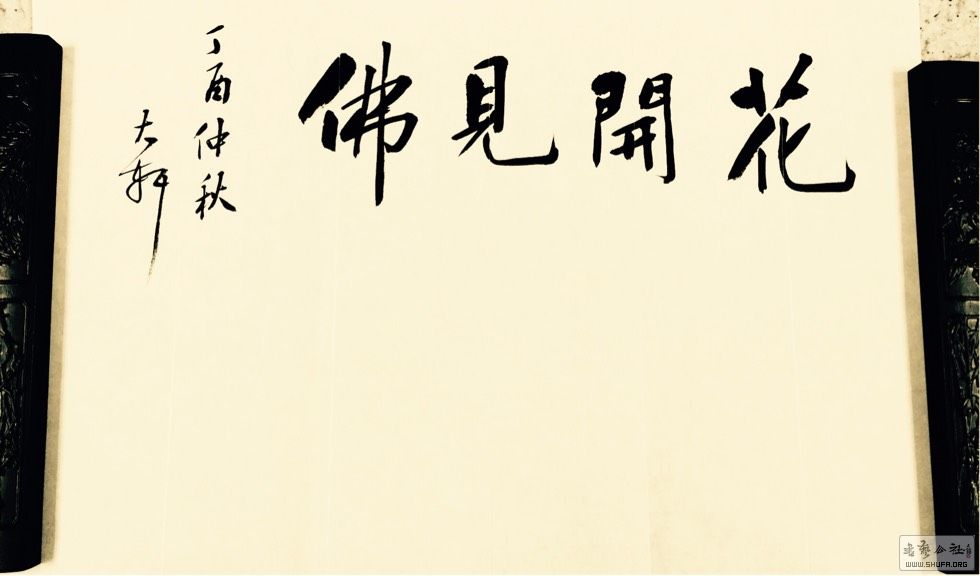 花開見佛
丁酉仲秋
大軒
書藝公社
WWW.SHUFA.ORG